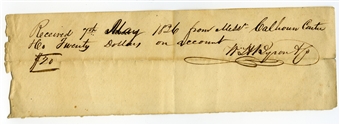 Received 7th May 1826 from Messrs Calhoun Carter
Co. Twenty Dollars on account
$20 Wm H Byron